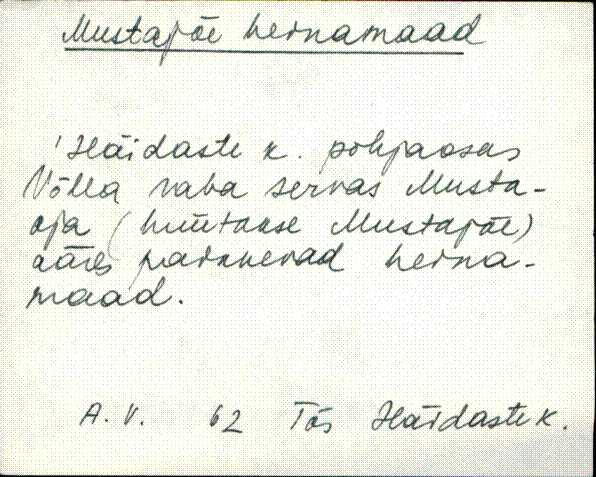 Mustajõe heinamaad
Häidaste k. põhjaosas
Võlla raba servas Musta-
oja (hüütakse Mustajõe)
ääres paiknevad heina-
maad.
A. V. 62 Tõs Häidaste k.